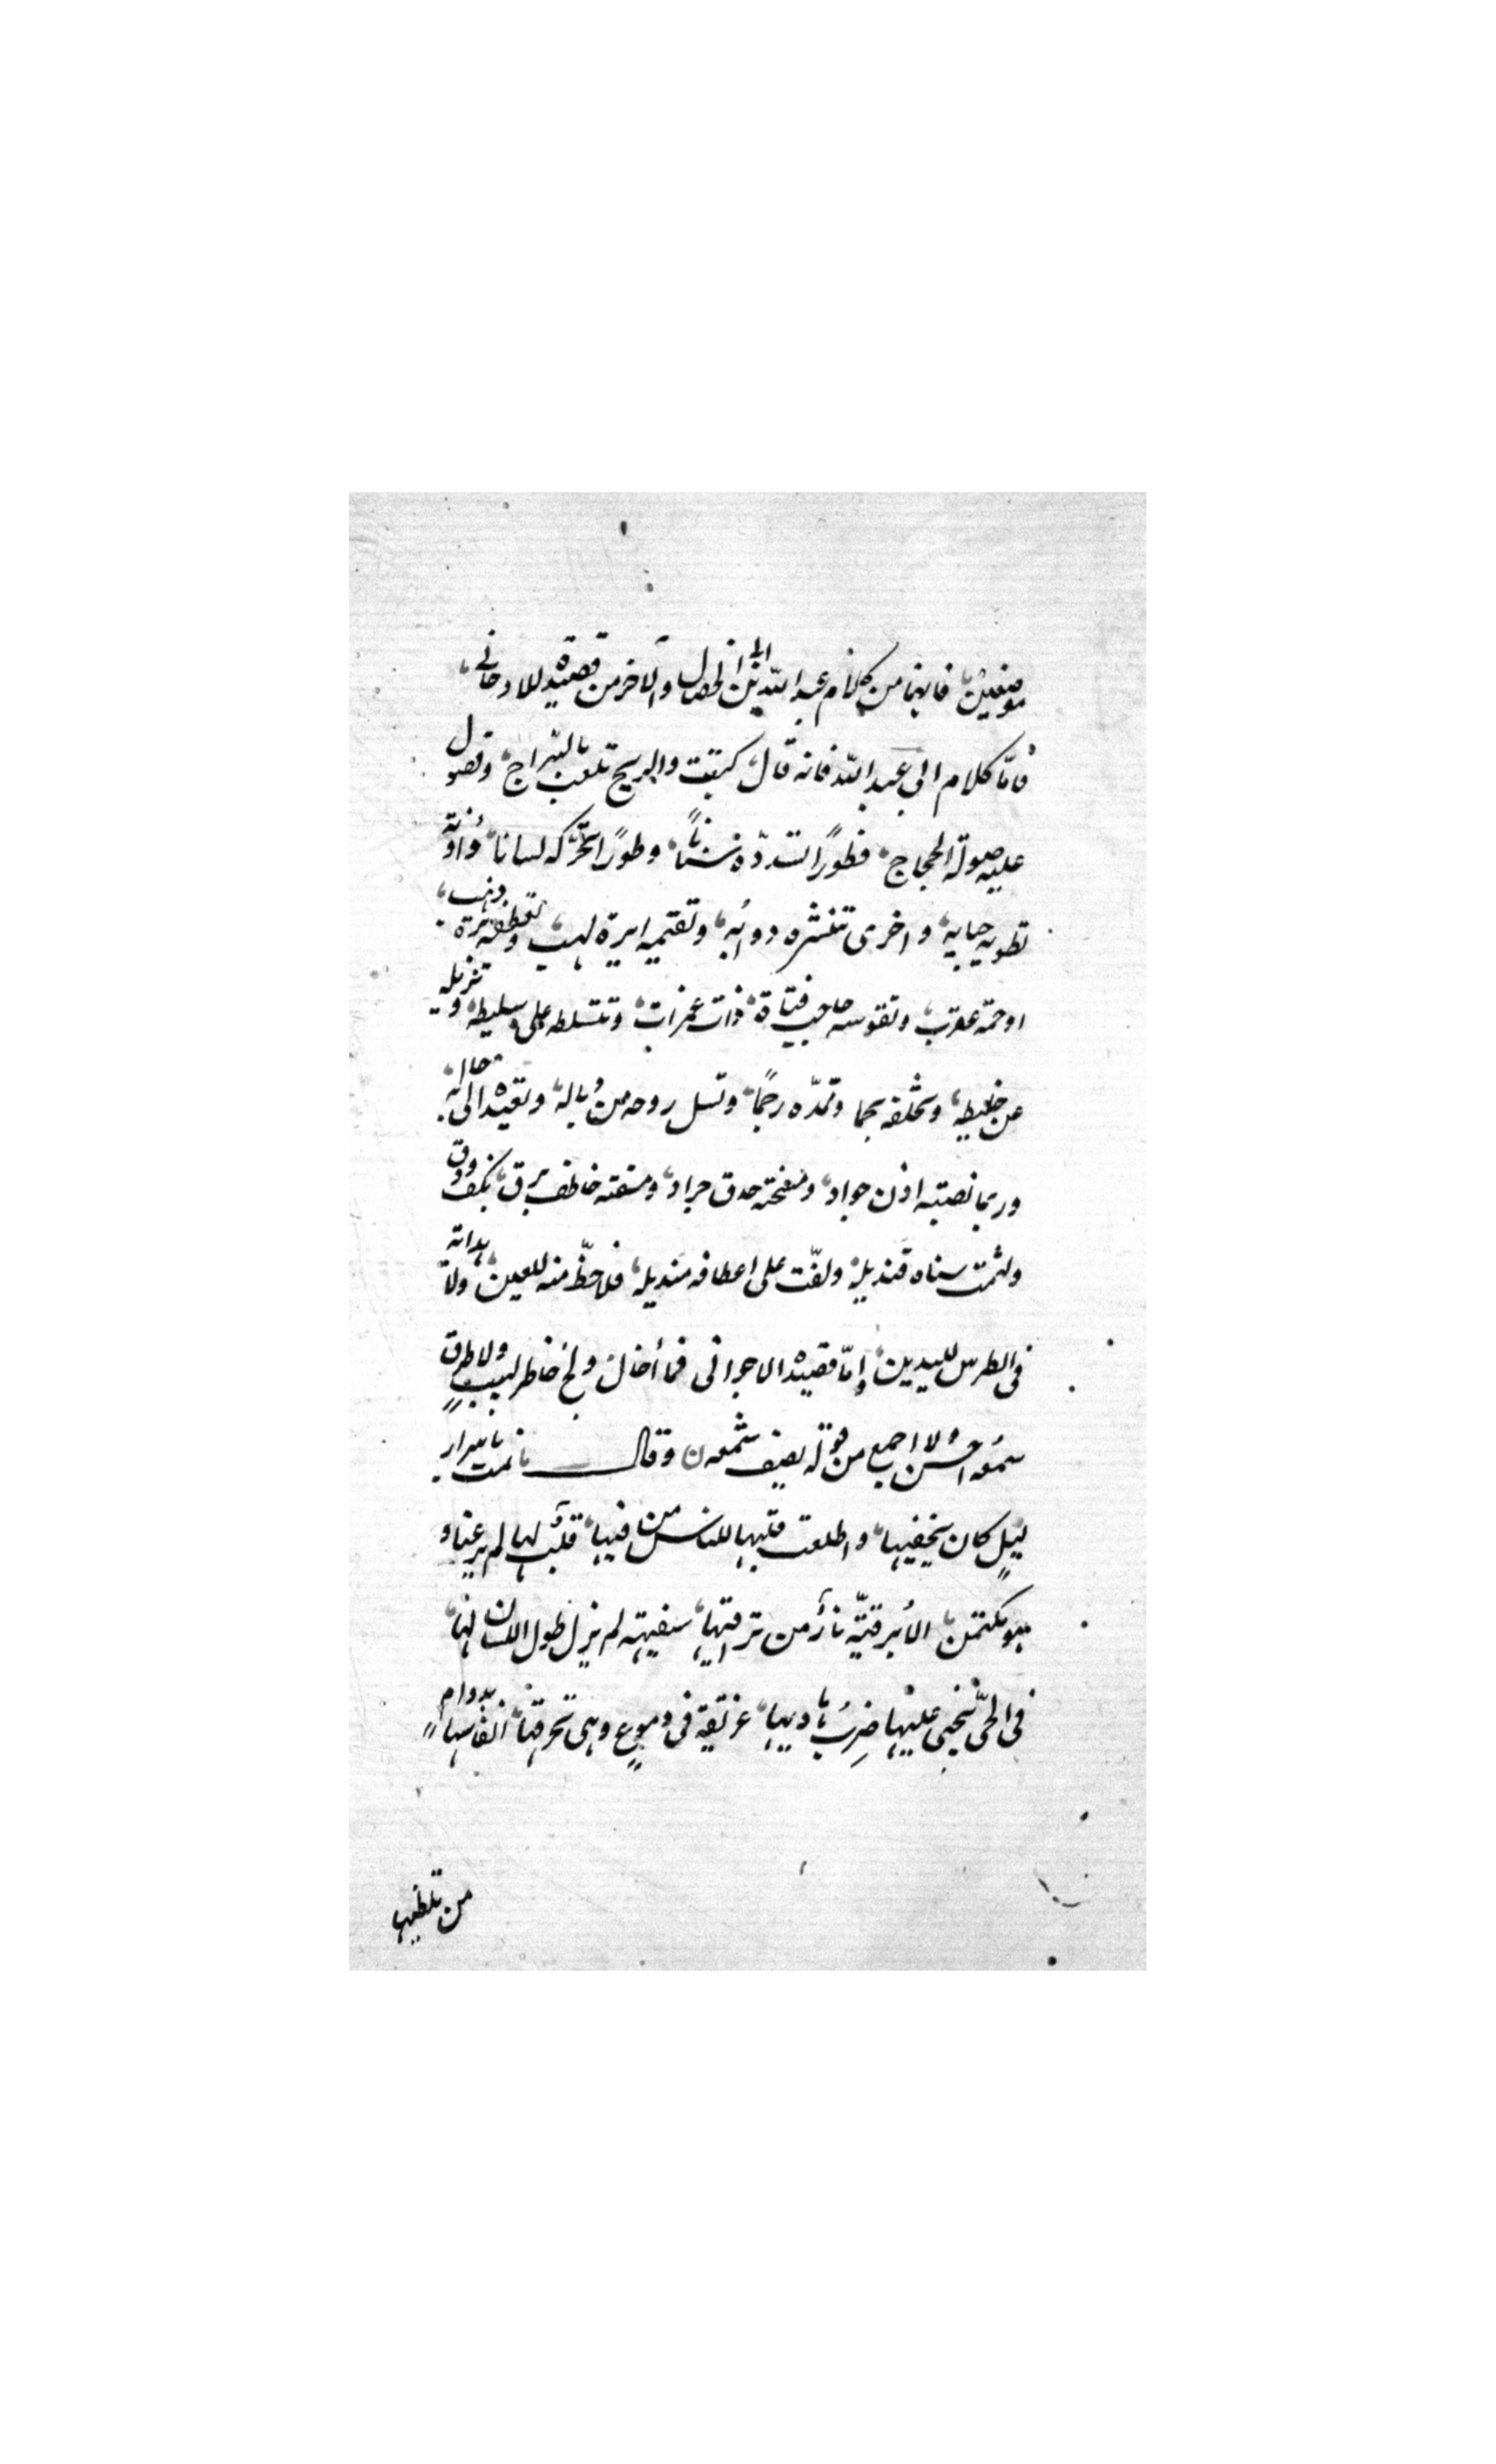 موضعين، فانهما من كلام عبد الله ابن ابى الخصال والآخر من قصيدة للارجاني،
فامّا كلام ابى عبد الله فانه قال، كتبت والريح تلعب بالسّراج، وتصول
عليه صولة الحجاج، فطورًا تسدّده سنانًا، وطورًا تحرّكه لسانا، وآونة
تطويه حبابه، واخرى تنشره ذوابه، وتقيمه ابرة لهب، وتعطفه برة ذهب،
او حمة عقرب، وتقوسه حاجب فتاة، ذات غمزات، وتتسلطه على سليطه، وتزيله
عن خليطه، وتخلفه نجما وتمدّه رجمًا، وتسل روحه من ذباله، وتعيده الى حاله،
وربما نصبته اذن جواد، ومسخته حدق جراد، ومشقته خاطف برق، بكف ودق
ولثمت سناه قنديله، ولفّت على اعطافه منديله، فلا حظّ منه للعين، ولا هداية
فى الطرس لليدين، وامّا قصيدة الارجوانى فما أخال ولج خاطر لبيبٍ ولا طرق
سمعه احسن ولا اجمع من قوله يصف شمعه ن وقال نمت باسرار
ليلٍ كان يخفيها، واطلعت قلبها للناس من فيها، قلبٌ لها لم يرعنا و
هو مكتمن، الا برقيّة نارٍ من تراقيها، سفيهة لم يزل طول اللسان لها،
فى الحىّ يجنى عليها ضربُ هاديها، غريقة فى دموعٍ وهى تحرقها، انفاسها بدوام
من تلظيها